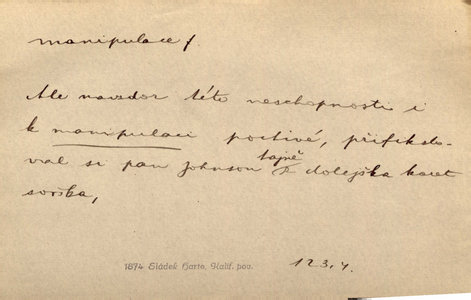 manipulace f.
Ale navzdor této neschopnosti i
k manipulaci poctivé, přifikslo-
val si pan Johnson tajně k dolejška karet
1874 Sládek Harte, Kalif. pov.
123,4.